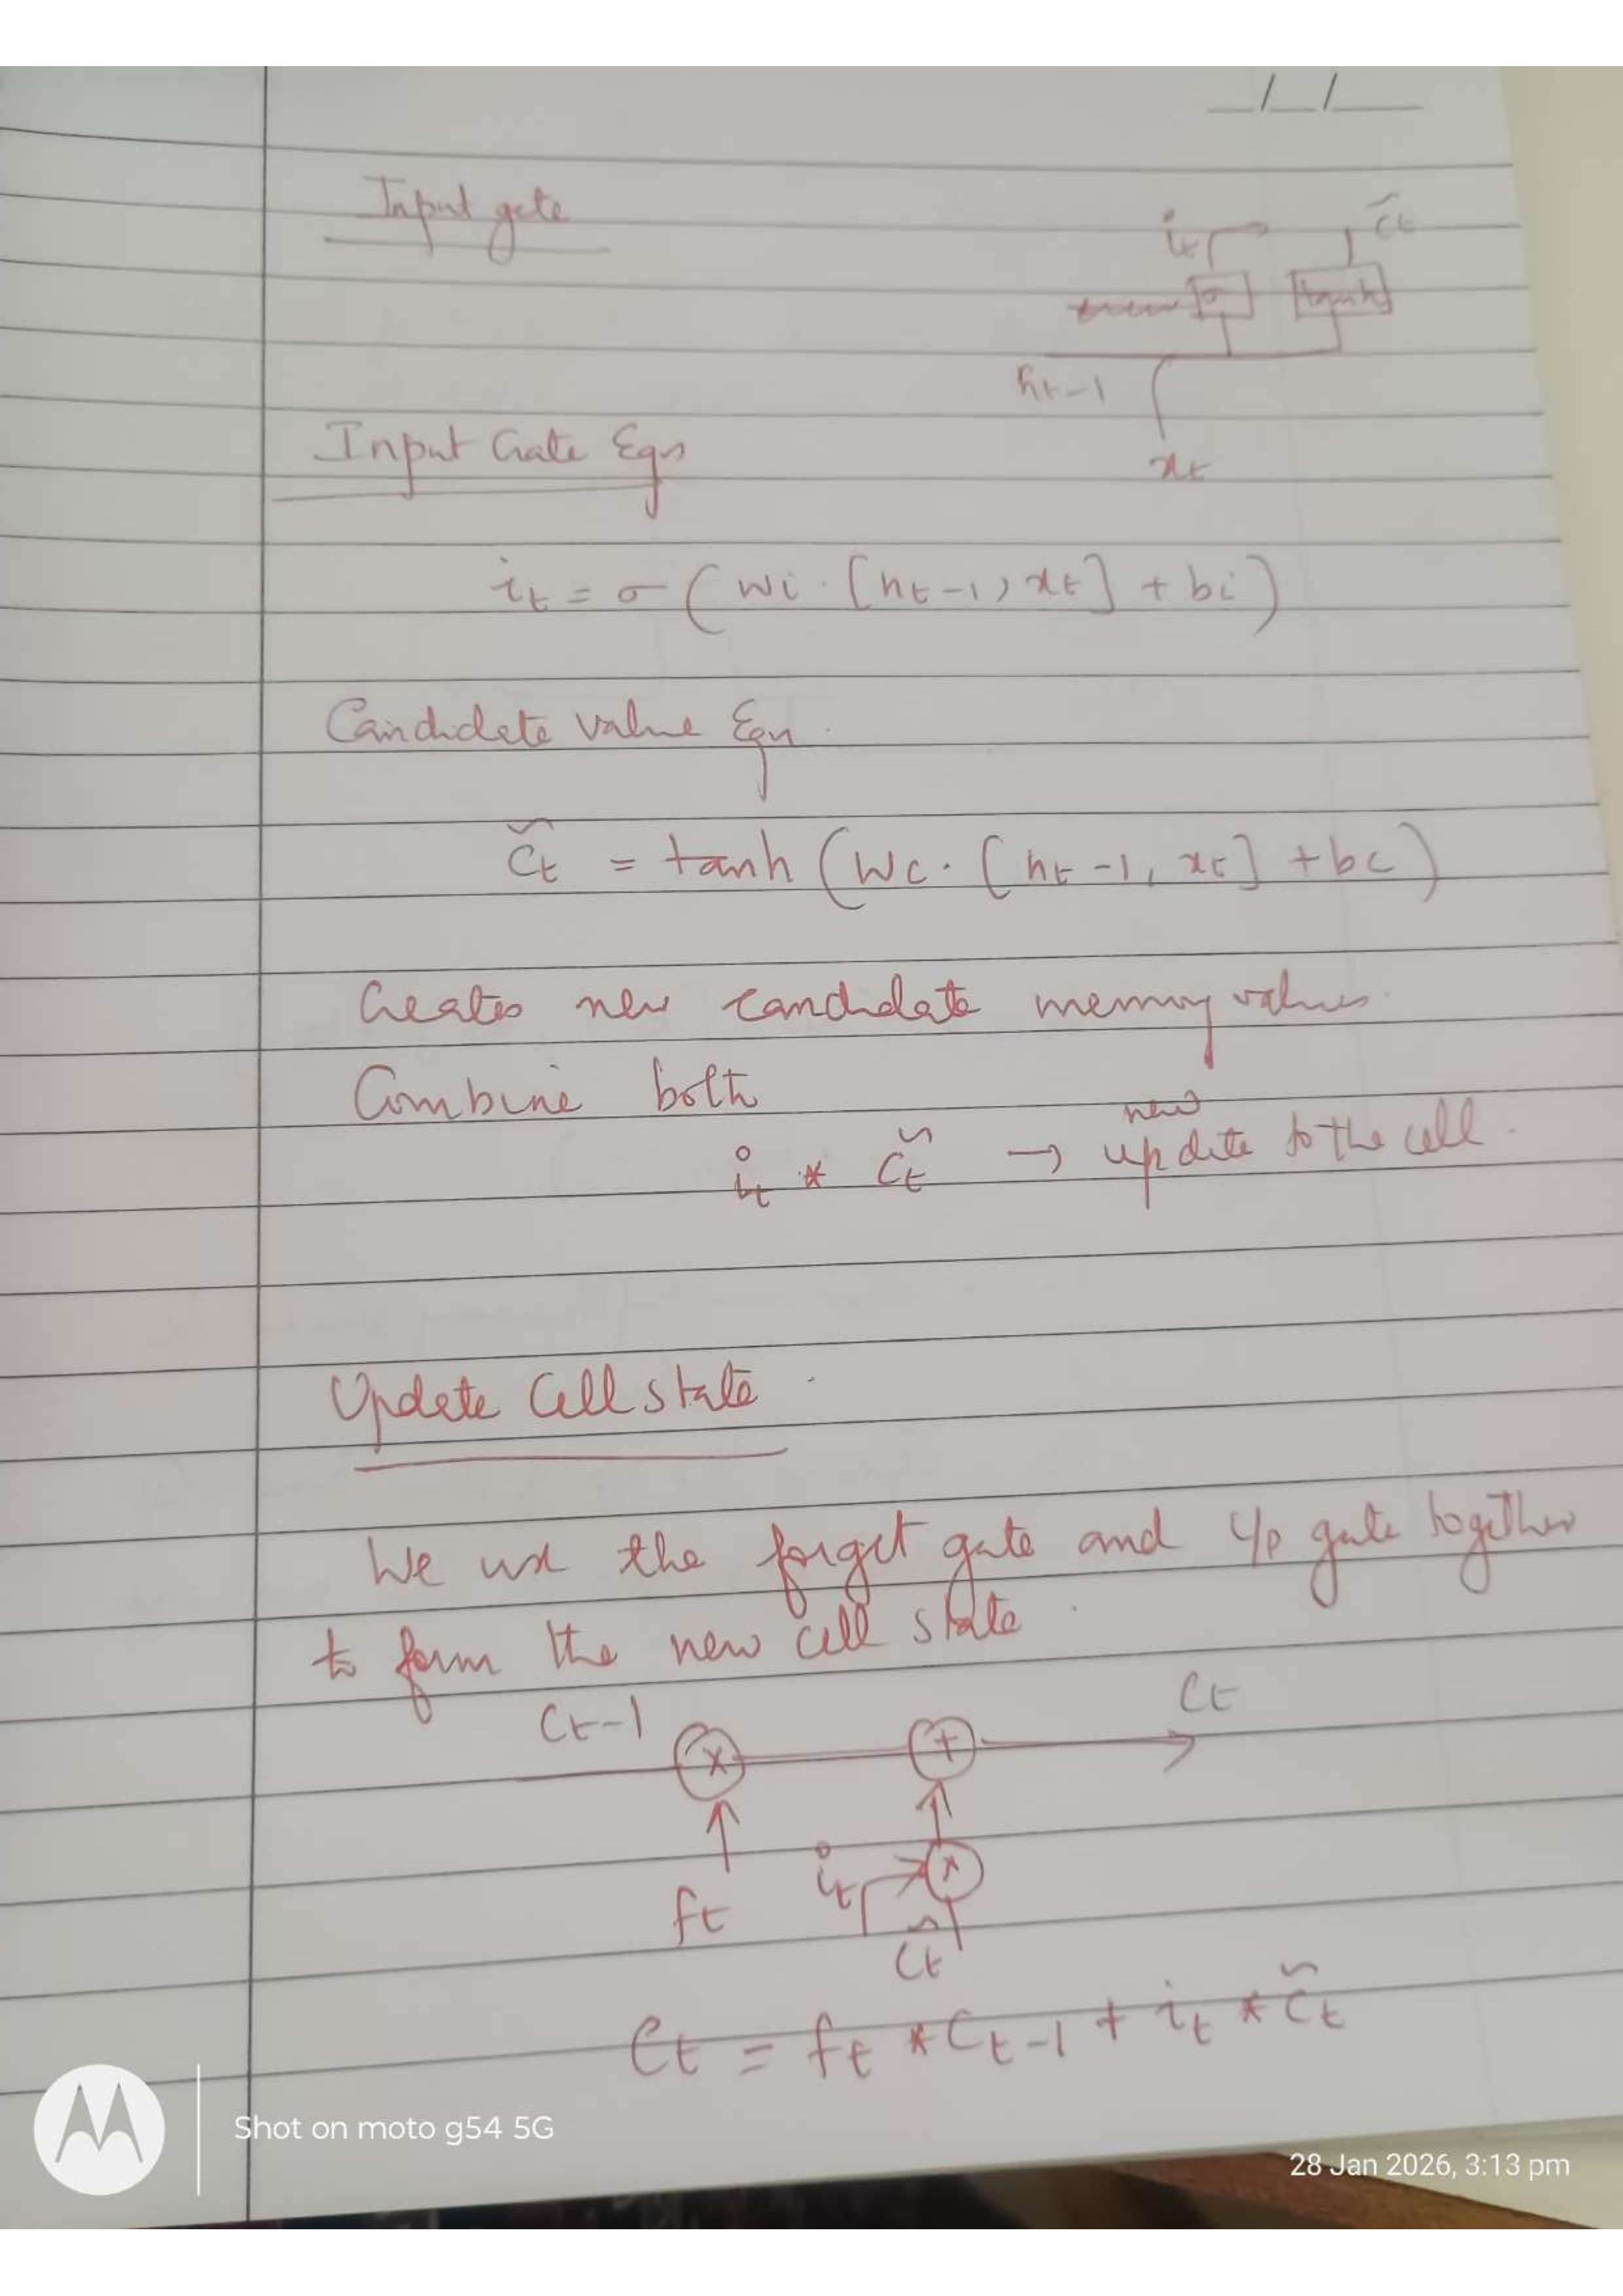 __/__/____
Input gate
it C̃t
σ tanh
ht-1
xt
Input Gate Eqn
it = σ (Wi . [ht-1, xt] + bi)
Candidate value Eqn.
C̃t = tanh (Wc . [ht-1, xt] + bc)
Creates new candidate memory values.
Combine both
new
it * C̃t → update to the cell.
Update Cell state.
We use the forget gate and i/p gate together
to form the new cell state.
Ct-1 × + Ct
it ×
ft
C̃t
Ct = ft * Ct-1 + it * C̃t
Shot on moto g54 5G
28 Jan 2026, 3:13 pm